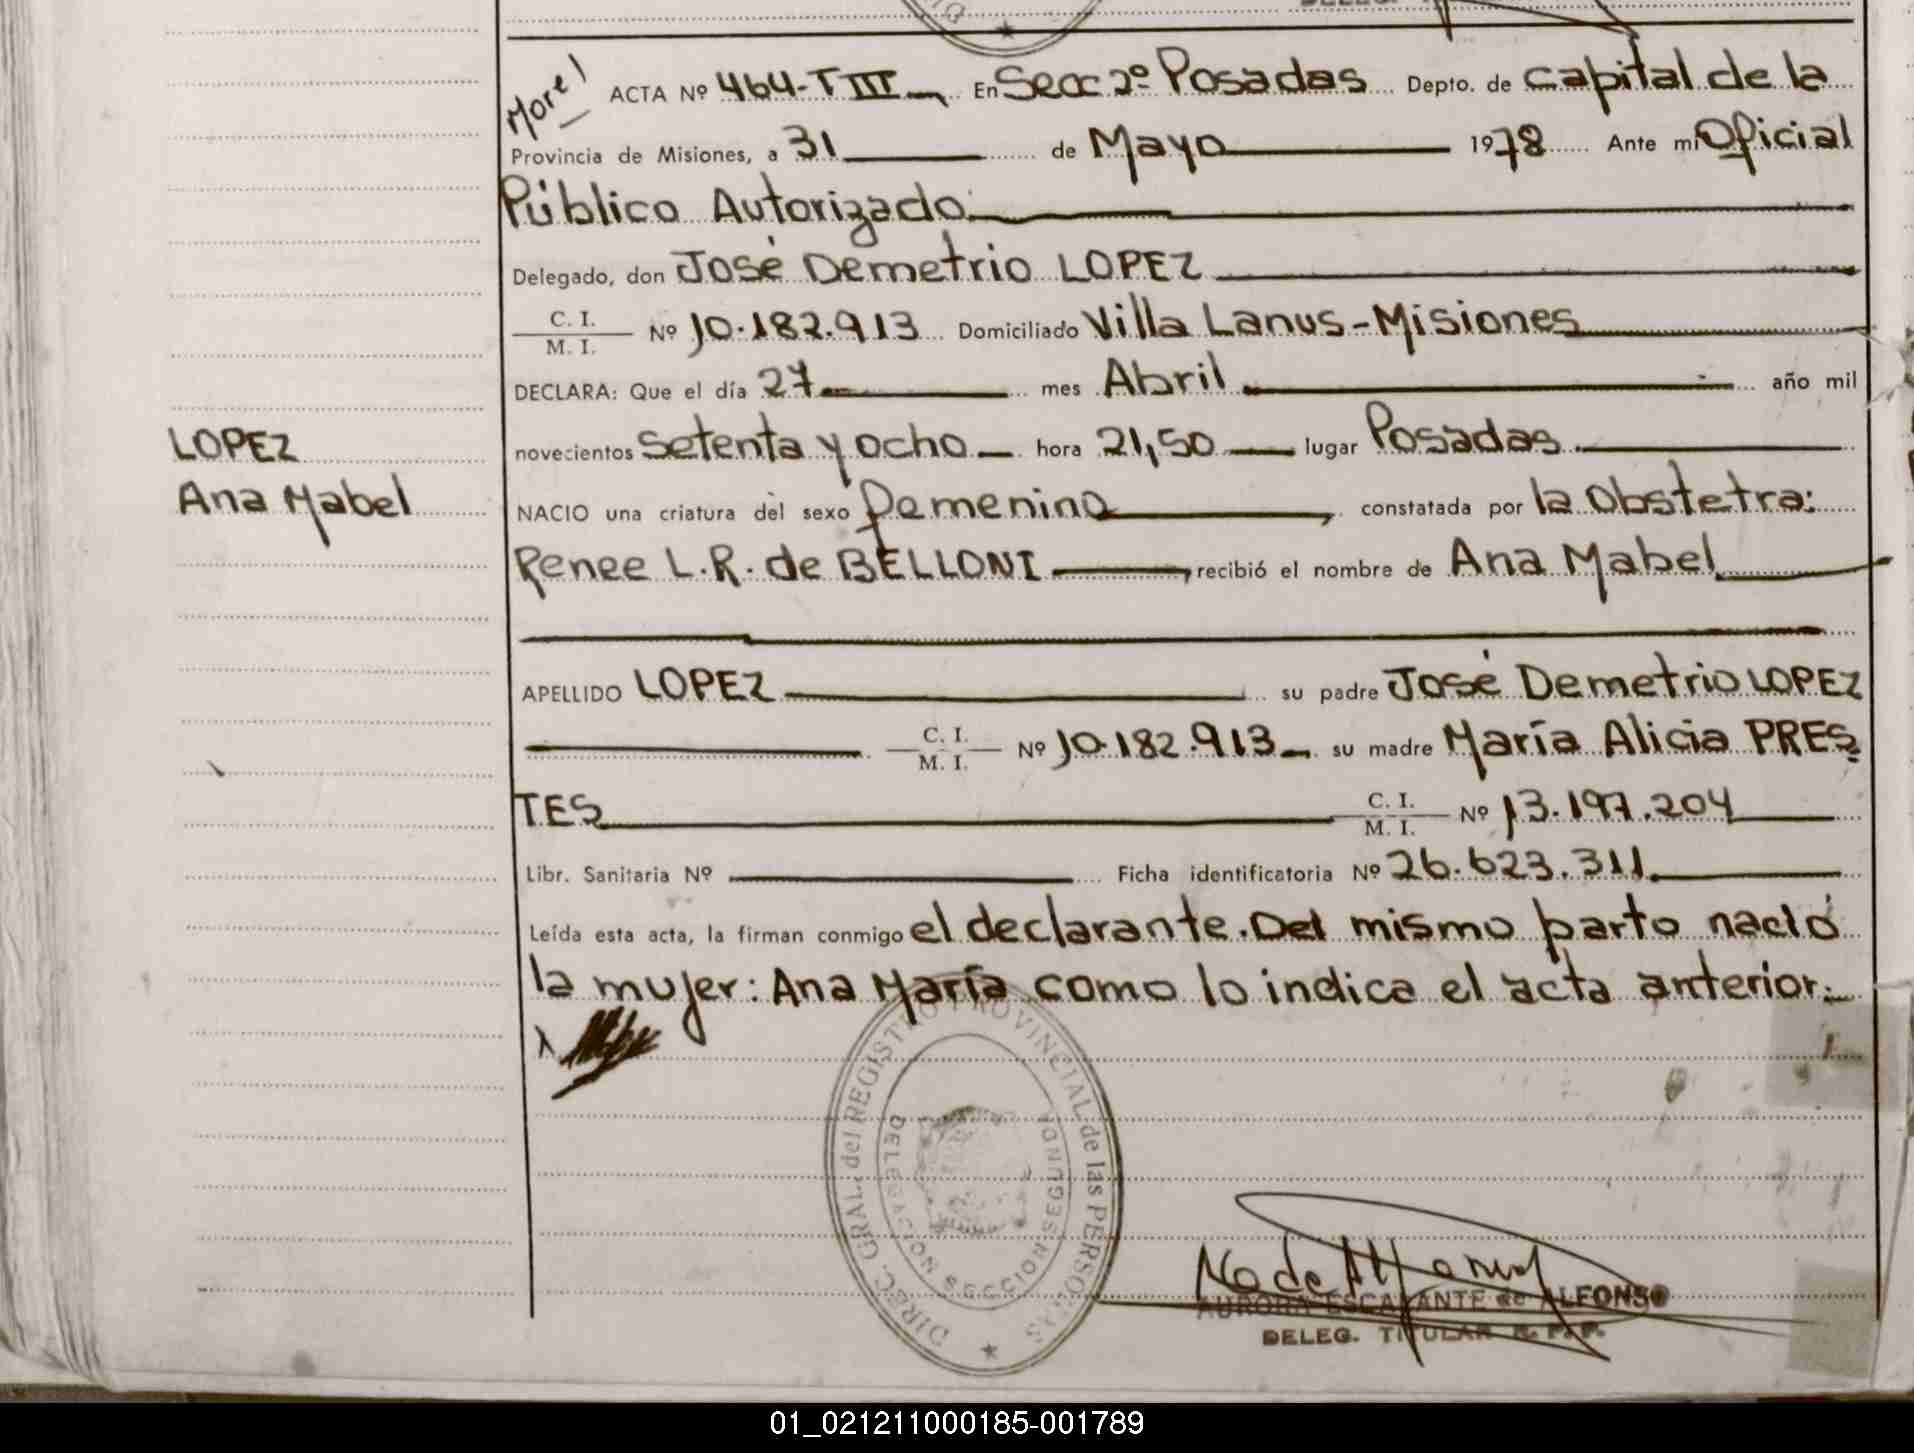 DELEG.
Morel ACTA Nº 464-T III En Secc 2º Posadas Depto. de Capital de la
Provincia de Misiones, a 31 de Mayo 1978 Ante mi Oficial
Público Autorizado
Delegado, don José Demetrio LOPEZ
C. I. M. I. Nº 10.182.913 Domiciliado Villa Lanus-Misiones
DECLARA: Que el día 27 mes Abril año mil
novecientos Setenta y ocho hora 21,50 lugar Posadas
NACIO una criatura del sexo Femenino constatada por la Obstetra:
Renee L.R. de BELLONI recibió el nombre de Ana Mabel
LOPEZ
Ana Mabel
APELLIDO LOPEZ su padre José Demetrio LOPEZ
C. I. M. I. Nº 10.182.913 su madre María Alicia PRES
TES C. I. M. I. Nº 13.197.204
Libr. Sanitaria Nº Ficha identificatoria Nº 26.623.311
Leída esta acta, la firman conmigo el declarante. Del mismo parto nació
la mujer: Ana María como lo indica el acta anterior.
DIREC. GRAL. del REGISTRO PROVINCIAL de las PERSONAS
DELEGACION SECCION SEGUNDA
AURORA ESCALANTE de ALFONSO
DELEG. TITULAR R. P. P.
01_021211000185-001789